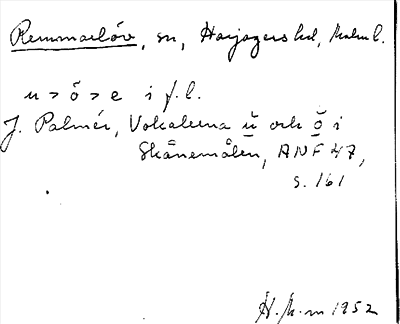 Remmarlöv, sn, Harjagers hd, Malm l.
u > ŏ > e i f. l.
J. Palmér, Vokalerna ŭ och ŏ i
Skånemålen, ANF 47,
s. 161
H. M-m 1952